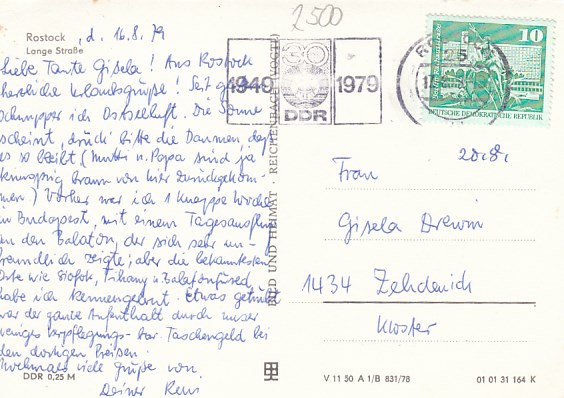 2500
Rostock
Lange Straße
, d. 16.8.79
Liebe Tante Gisela! Aus Rostock
herzliche Urlaubsgrüße! Seit
schnupper ich Ostseeluft. Die Sonne
scheint, drück bitte die Daumen, daß
es so bleibt (Mutti u. Papa sind ja
braun von hier zurückgekom-
men) Vorher war ich 1 knappe Woche
in Budapest, mit einem Tagesausflug
an den Balaton, der sich sehr un-
freundlich zeigte; aber die bekanntesten
Orte wie Siofok, Tihany u. Balatonfüred
habe ich kennengelernt. Etwas getrübt
war der ganze Aufenthalt durch unser
weniges Verpflegungs- bzw. Taschengeld bei
den dortigen Preisen.
Nochmals viele Grüße von
Deiner
DDR 0,25 M
BILD UND HEIMAT · REICHENBACH (VOGTL)
1949 30 1979
DDR
25
10
DEUTSCHE DEMOKRATISCHE REPUBLIK
20.8.
Frau
Gisela Drewin
1434 Zehdenick
Kloster
V 11 50 A 1/B 831/78
01 01 31 164 K